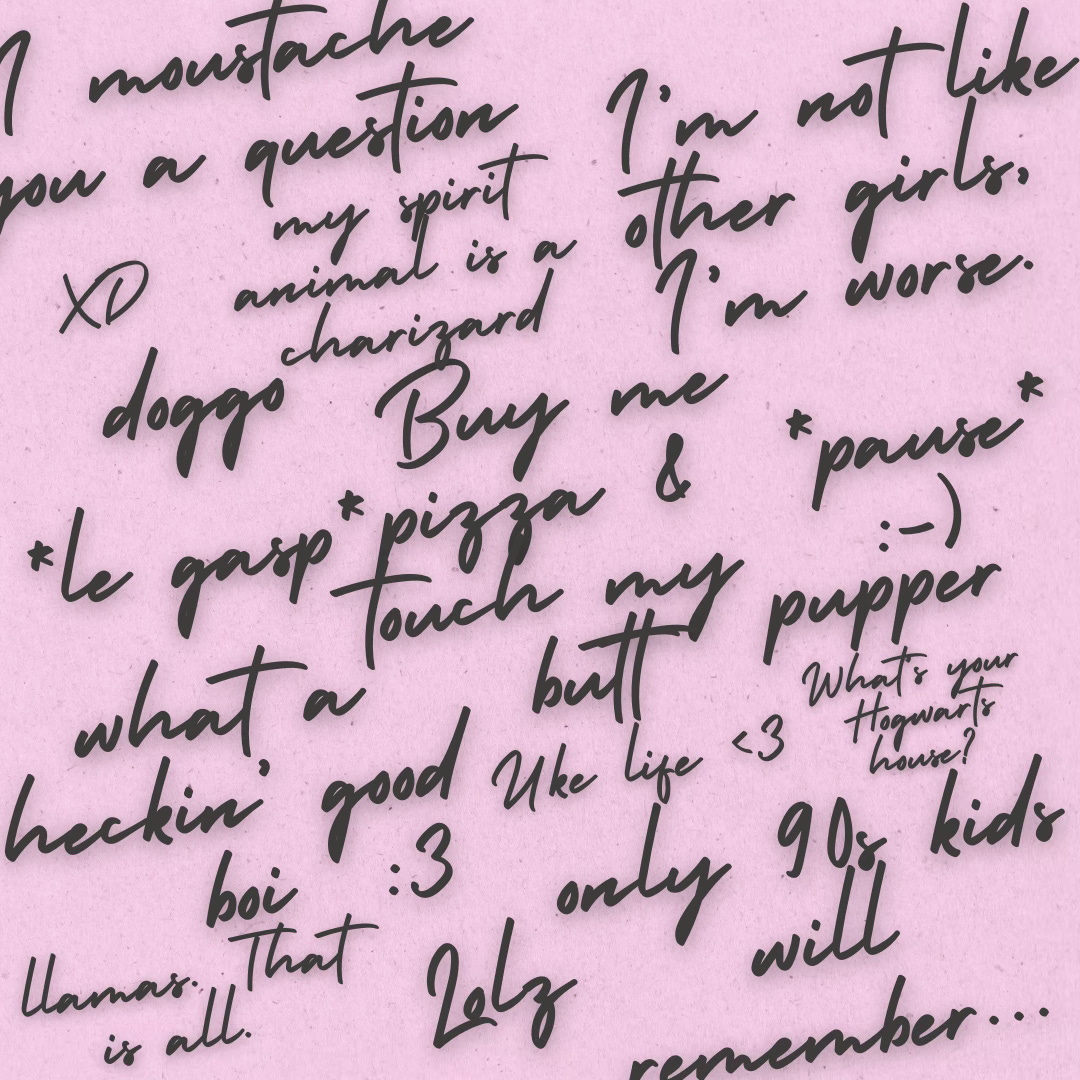 I moustache
you a question
I'm not like
other girls,
I'm worse.
my spirit
animal is a
charizard
XD
doggo
Buy me
pizza &
touch my
butt
*pause*
:-)
pupper
*le gasp*
what a
heckin' good
boi
:3
Uke life <3
What's your
Hogwarts
house?
only 90s kids
will
remember...
llamas. That
is all.
Lolz